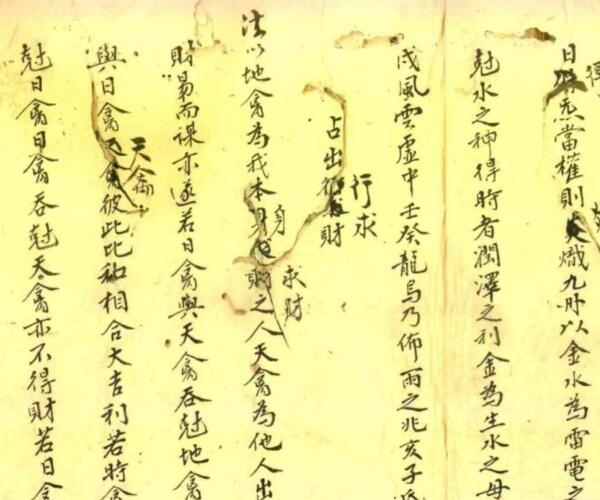 日時炁當權則火熾九时以金水為雷電之
尅水之神得時者潤澤之利金為生水之母
戌風雲虛中壬癸龍烏乃佈雨之兆亥子
占出行求財
法以地禽為我本身求財之人天禽為他人出
財易而謀亦遂若日禽與天禽吞尅地禽
與日禽天禽彼此比和相合大吉利若時禽
尅日禽日禽吞尅天禽亦不得財若日禽